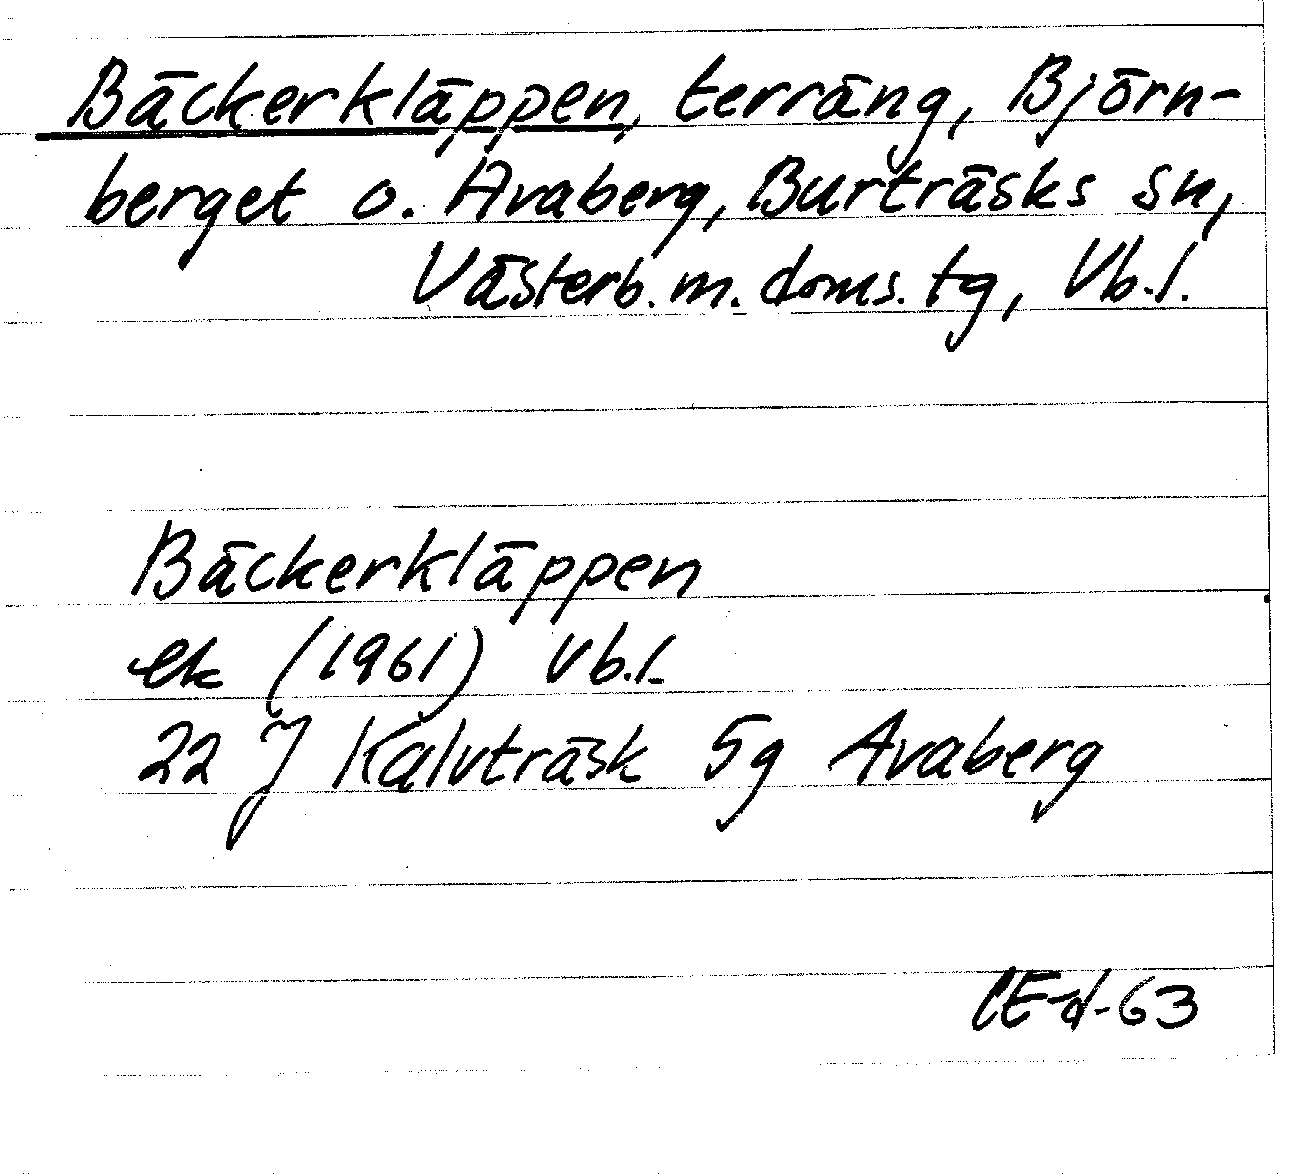 Bäckerkläppen, terräng, Björn-
berget o. Avaberg, Burträsks sn,
Västerb. m. doms. tg, Vb.l.
Bäckerkläppen
ek (1961) Vb.l.
22 J Kalvträsk 5g Avaberg
CE-d-63